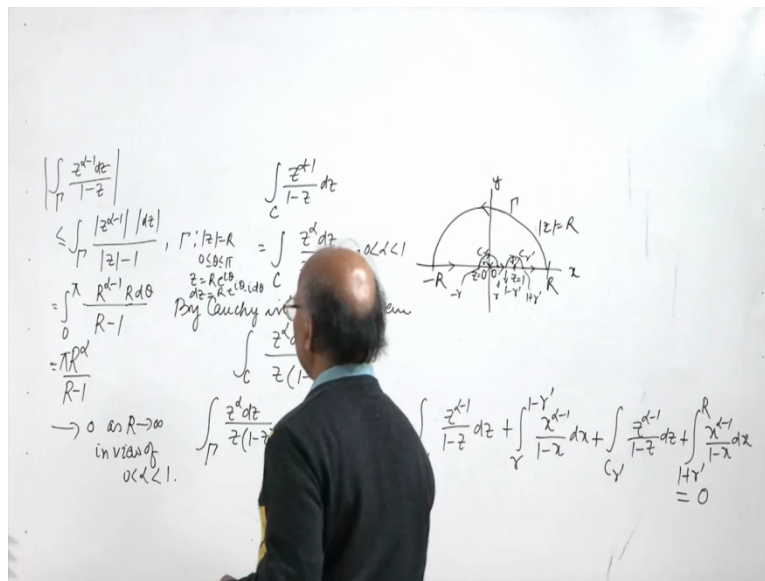 |∫_Γ z^{α-1}dz / 1-z|
≤ ∫_Γ |z^{α-1}| |dz| / |z|-1 , Γ: |z|=R
0≤θ≤π
z=Re^{iθ}
dz=Re^{iθ}.idθ
= ∫_0^π R^{α-1} R dθ / R-1
= πR^α / R-1
→ 0 as R→∞
in view of
0<α<1.
∫_C z^{α-1} / 1-z dz
= ∫_C z^α dz , 0<α<1
By Cauchy
∫_C z^α / z(1-
∫_Γ z^α dz / z(1-z
z^{α-1} / 1-z dz + ∫_r^{1-r'} x^{α-1} / 1-x dx + ∫_{C_{r'}} z^{α-1} / 1-z dz + ∫_{1+r'}^R x^{α-1} / 1-x dx
= 0
y
Γ
|z|=R
C_r C_{r'}
-R -r z=0 0 r 1-r' z=1 1+r' R x